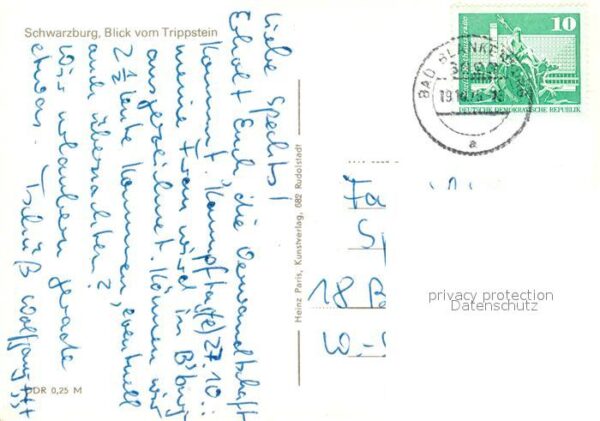 Schwarzburg, Blick vom Trippstein
Liebe Spechts!
Erholt Euch, die Verwandtschaft
kommt. Kampftag(e) 27.10.:
meine Frau wird in B'burg
ausgezeichnet. Können wir
2 1/2 Leute kommen, eventuell
auch übernachten?
Wir urlauben gerade
etwas. Tschüß Wolfgang
DDR 0,25 M
Heinz Paris, Kunstverlag, 682 Rudolstadt
10
DEUTSCHE DEMOKRATISCHE REPUBLIK
BAD BLANKENBURG
a
Fa
Sp
18 B
W.-
privacy protection
Datenschutz